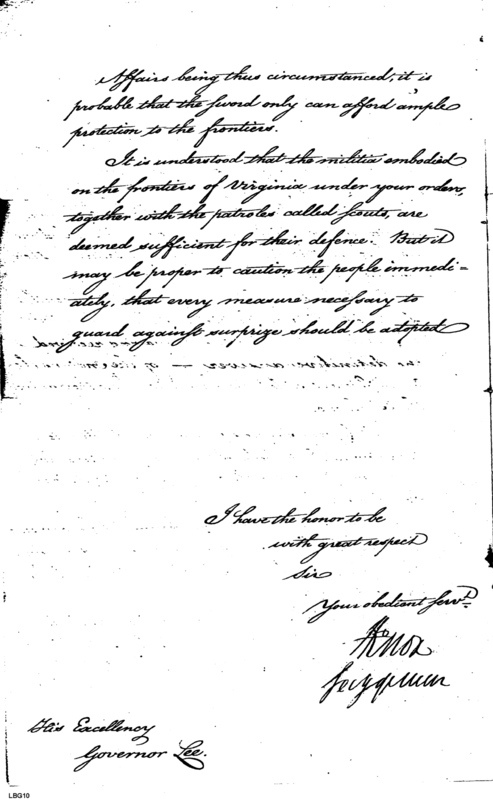 Affairs being thus circumstanced, it is
probable that the sword only can afford ample
protection to the frontiers.
It is understood that the militia embodied
on the frontiers of Virginia under your orders,
together with the patroles called scouts, are
deemed sufficient for their defence. But it
may be proper to caution the people immedi=
ately, that every measure necessary to
guard against surprize should be adopted
I have the honor to be
with great respect
Sir
Your obedient Servt.
HKnox
Secy of War
His Excellency
Governor Lee.
LBG10